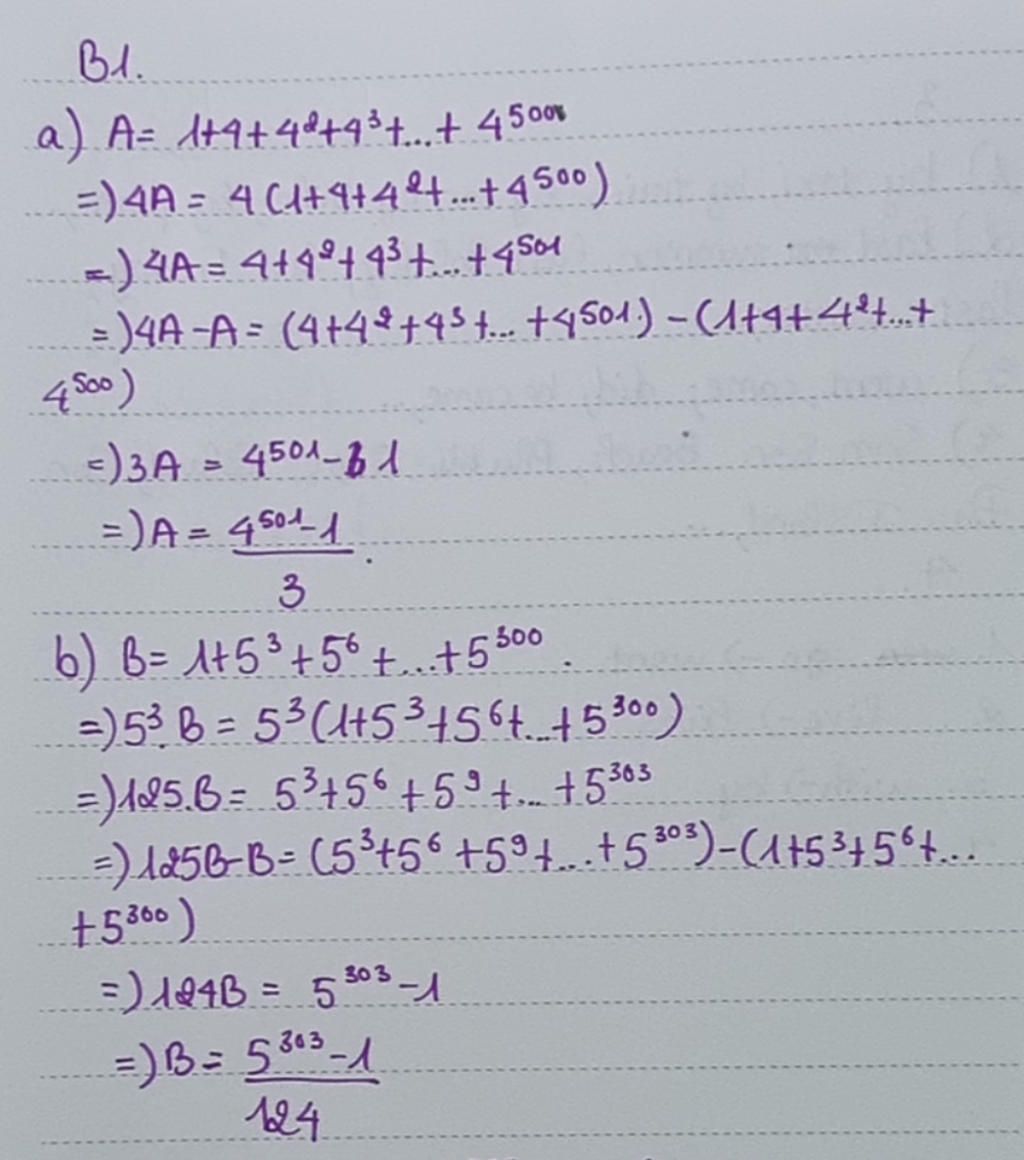 B1.
a) A = 1+4+4²+4³+...+ 4⁵⁰⁰
=) 4A = 4(1+4+4²+...+4⁵⁰⁰)
=) 4A = 4+4²+4³+...+4⁵⁰¹
=) 4A-A = (4+4²+4³+...+4⁵⁰¹)-(1+4+4²+...+
4⁵⁰⁰)
=) 3A = 4⁵⁰¹-1
=) A = 4⁵⁰¹-1
3
b) B = 1+5³+5⁶+...+5³⁰⁰.
=) 5³.B = 5³(1+5³+5⁶+...+5³⁰⁰)
=) 125.B = 5³+5⁶+5⁹+...+5³⁰³
=) 125B-B = (5³+5⁶+5⁹+...+5³⁰³)-(1+5³+5⁶+...
+5³⁰⁰)
=) 124B = 5³⁰³-1
=) B = 5³⁰³-1
124